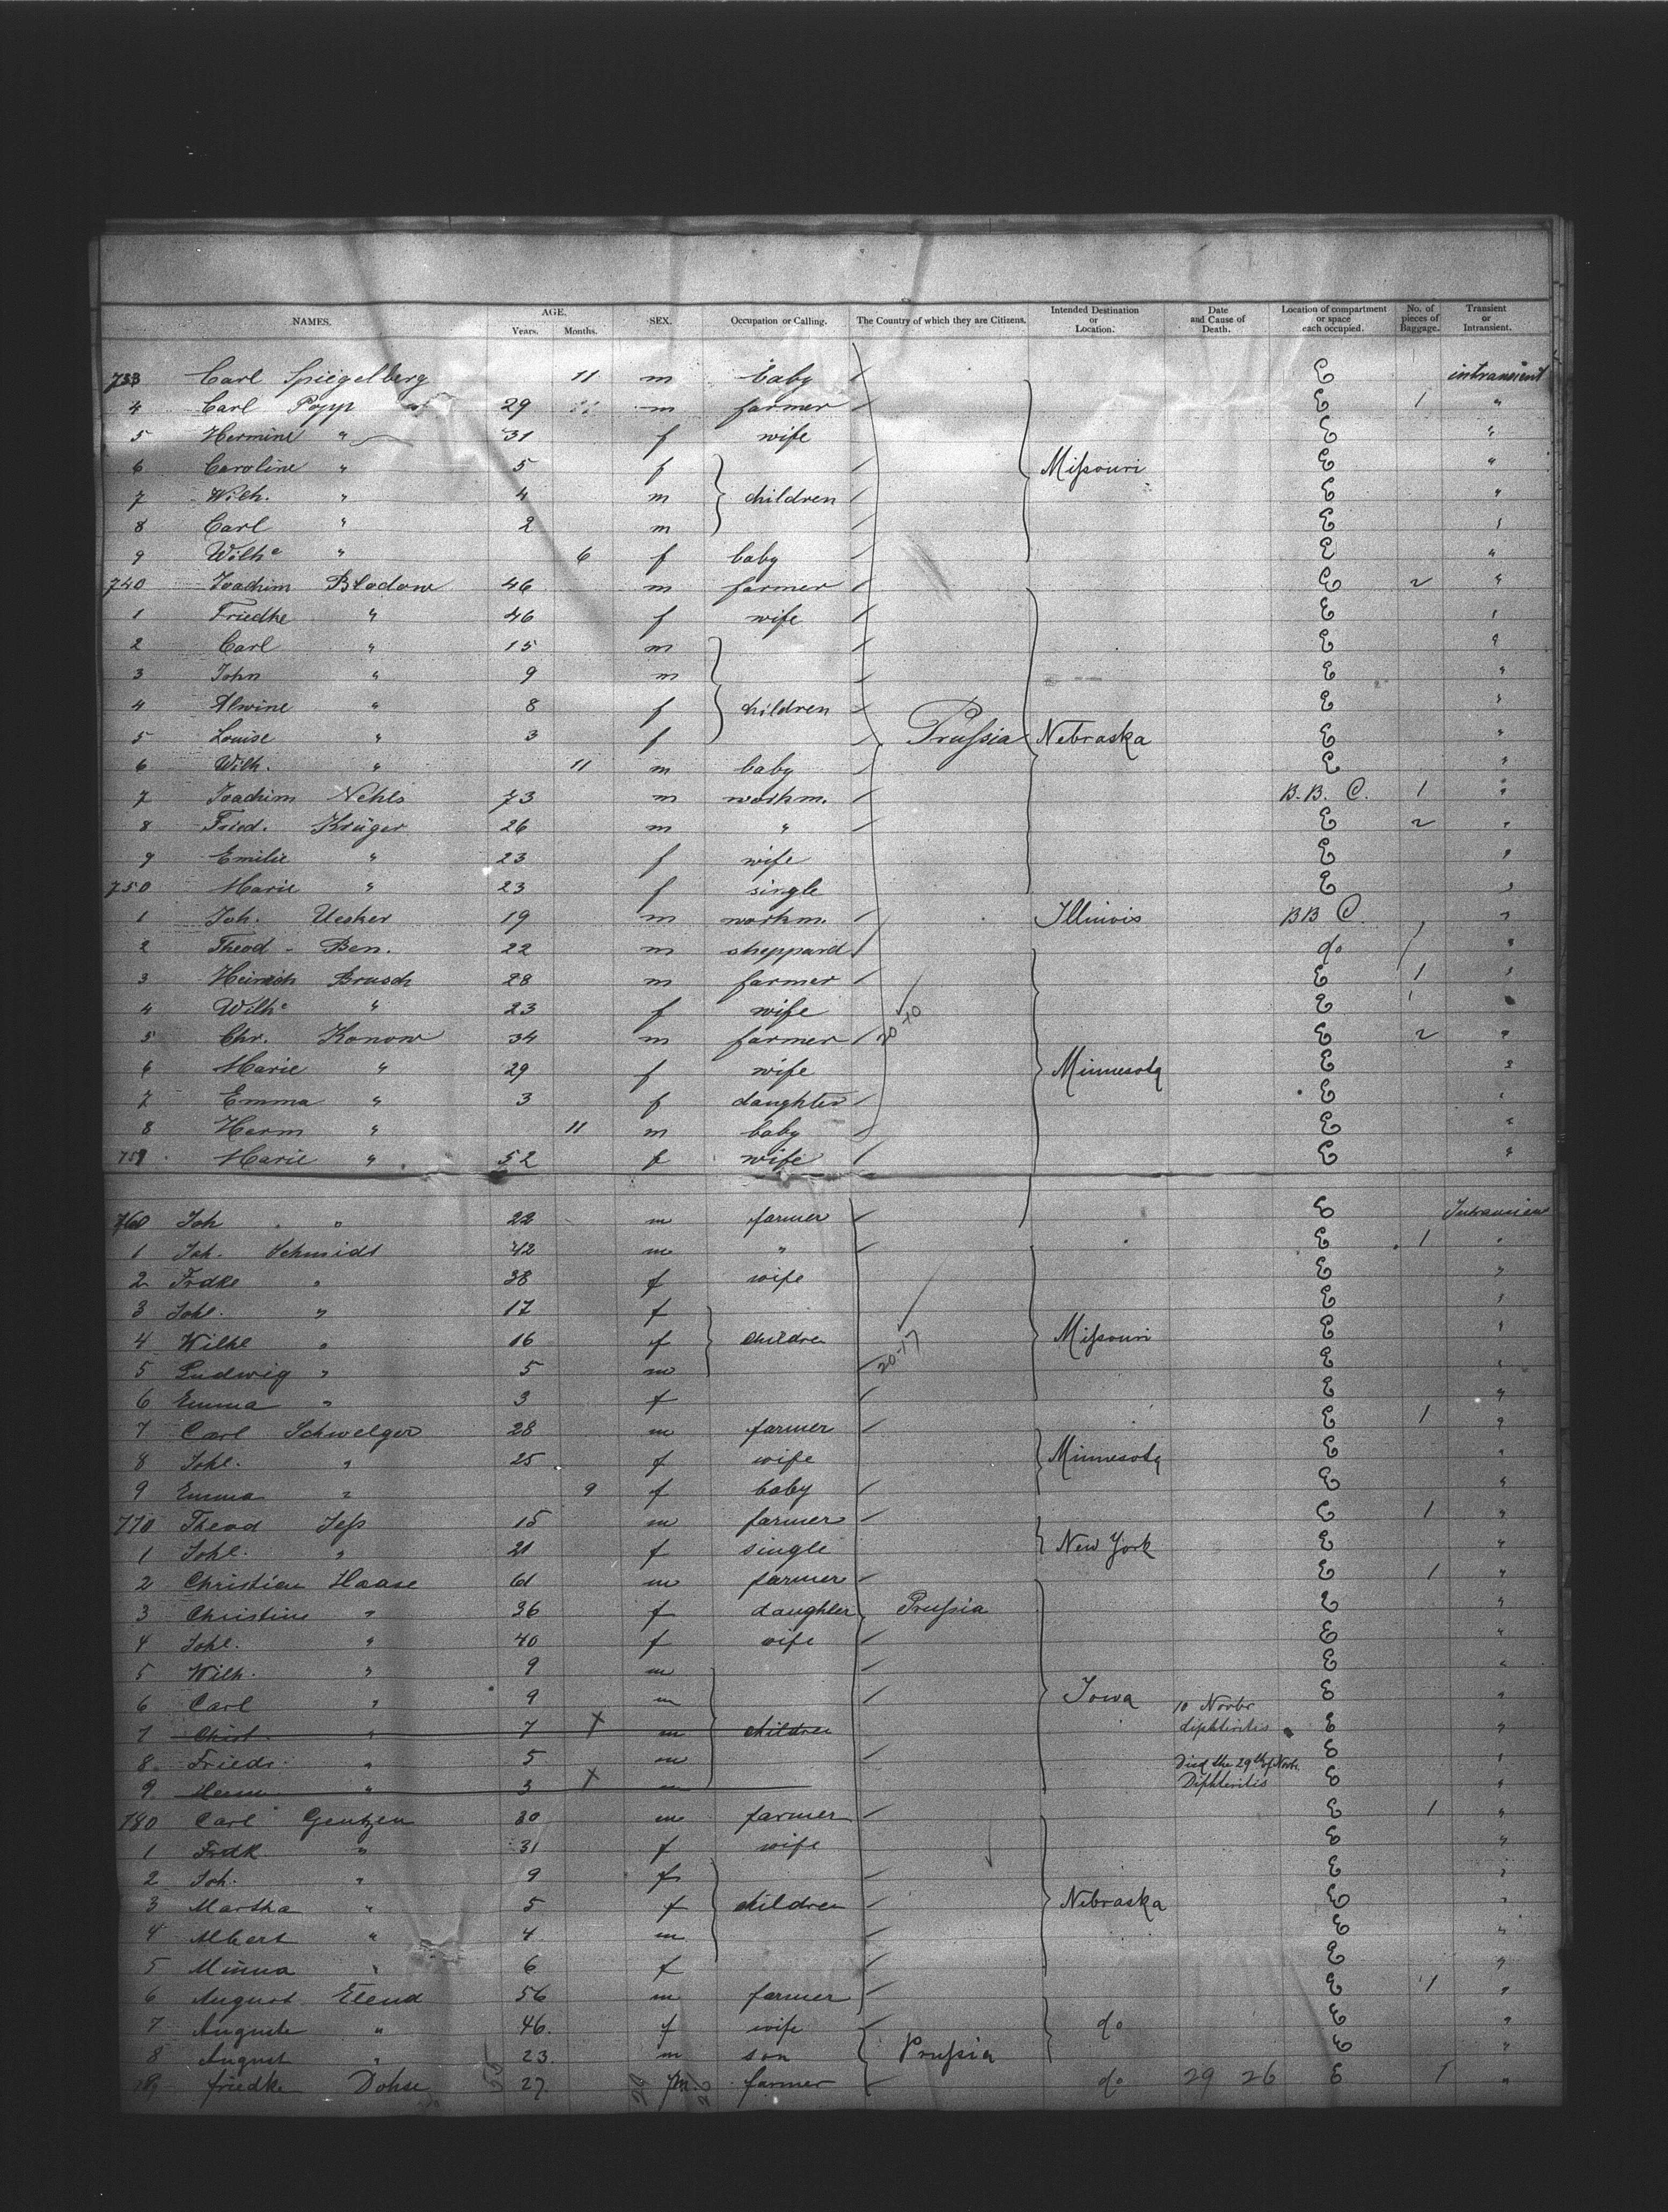 NAMES. AGE. Years. Months. SEX. Occupation or Calling. The Country of which they are Citizens. Intended Destination or Location. Date and Cause of Death. Location of compartment or space each occupied. No. of pieces of Baggage. Transient or Intransient.
733 Carl Spiegelberg 11 m baby E intransient
4 Carl Popp 29 m farmer E 1 "
5 Hermine " 31 f wife E "
6 Caroline " 5 f Mißouri E "
7 Wilh. " 4 m children E "
8 Carl " 2 m E "
9 Wilhe " 6 f baby E "
740 Joachim Bladow 46 m farmer E 2 "
1 Friedke " 46 f wife E "
2 Carl " 15 m E "
3 John " 9 m E "
4 Alwine " 8 f children E "
5 Louise " 3 f Prußia Nebraska E "
6 Wilh. " 11 m baby E "
7 Joachim Nehls 73 m workm. B.B. C. 1 "
8 Fried. Krüger 26 m " E 2 "
9 Emilie " 23 f wife E "
750 Marie " 23 f single E "
1 Joh. Uecker 19 m workm. Illinois BB C. "
2 Theod. Ben. 22 m sheppard do "
3 Heinrich Brusch 28 m farmer E 1 "
4 Wilhe " 23 f wife E "
5 Chr. Konow 34 m farmer 20-10 E 2 "
6 Marie " 29 f wife Minnesota E "
7 Emma " 3 f daughter E "
8 Herm " 11 m baby E "
759 Marie " 52 f wife E "
760 Joh " 22 m farmer E Intransien
1 Joh. Schmidt 42 m " E 1 "
2 Frdke " 38 f wife E "
3 Johe. " 17 f E "
4 Wilhe " 16 f children Mißouri E "
5 Ludwig " 5 m 20-17 E "
6 Emma " 3 f E "
7 Carl Schwelger 28 m farmer E 1 "
8 Johe. " 25 f wife Minnesota E "
9 Emma " 9 f baby E "
770 Theod Jeß 15 m farmer E 1 "
1 Johe. " 21 f single New York E "
2 Christian Haase 61 m farmer E 1 "
3 Christine " 36 f daughter Prußia E "
4 Johe. " 40 f wife E "
5 Wilh. " 9 m E "
6 Carl " 9 m Iowa 10 Novbr E "
7 Christ. " 7 X m children diphteritis E "
8 Friedr. " 5 m Died the 29th of Novb. E "
9 Herm " 3 X m Diphteritis E "
780 Carl Gentzen 30 m farmer E 1 "
1 Frdk " 31 f wife E "
2 Joh. " 9 f E "
3 Martha " 5 f children Nebraska E "
4 Albert " 4 m E "
5 Minna " 6 f E "
6 August Elend 56 m farmer E 1 "
7 Auguste " 46. f wife do E "
8 August " 23. m son Prußia E "
789 friedke Dohse 27. m. farmer do 29 26 E 1 "